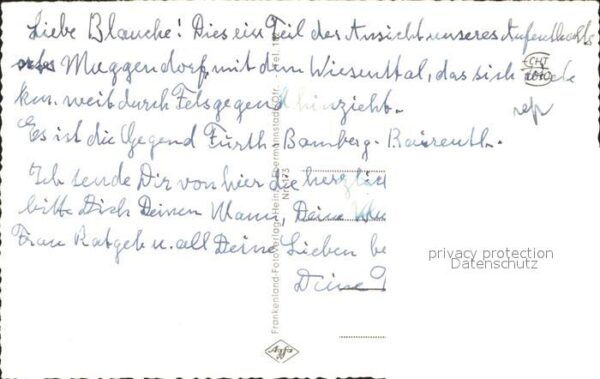 Liebe Blanche! Dies ein Teil der Ansicht unseres Aufenthalts
ortes Muggendorf mit dem Wiesenttal, das sich viele
km. weit durch Felsgegend hinzieht.
Es ist die Gegend Fürth-Bamberg-Baireuth.
Ich sende Dir von hier die herzlich
bitte Dich Deinen Mann, Deine
Frau Ratgeb u. all Deine Lieben be
Deine
Frankenland-Fotoverlag Hein Ebermannstadt/Ofr. Tel.
Nr. 173
privacy protection
Datenschutz